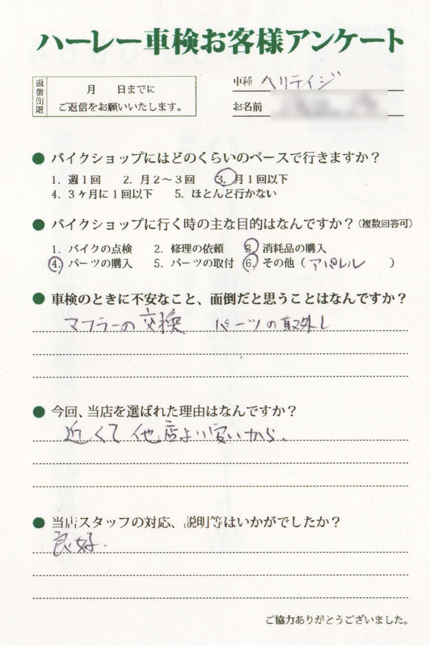 ハーレー車検お客様アンケート
返信期限
月　日までに
ご返信をお願いいたします。
車種 ヘリテイジ
お名前
● バイクショップにはどのくらいのペースで行きますか？
1. 週1回　2. 月2～3回　3. 月1回以下
4. 3ヶ月に1回以下　5. ほとんど行かない
● バイクショップに行く時の主な目的はなんですか？(複数回答可)
1. バイクの点検　2. 修理の依頼　3. 消耗品の購入
4. パーツの購入　5. パーツの取付　6. その他（アパレル　）
● 車検のときに不安なこと、面倒だと思うことはなんですか？
マフラーの交換　パーツの取外し
● 今回、当店を選ばれた理由はなんですか？
近くて他店より安いから。
● 当店スタッフの対応、説明等はいかがでしたか？
良好.
ご協力ありがとうございました。